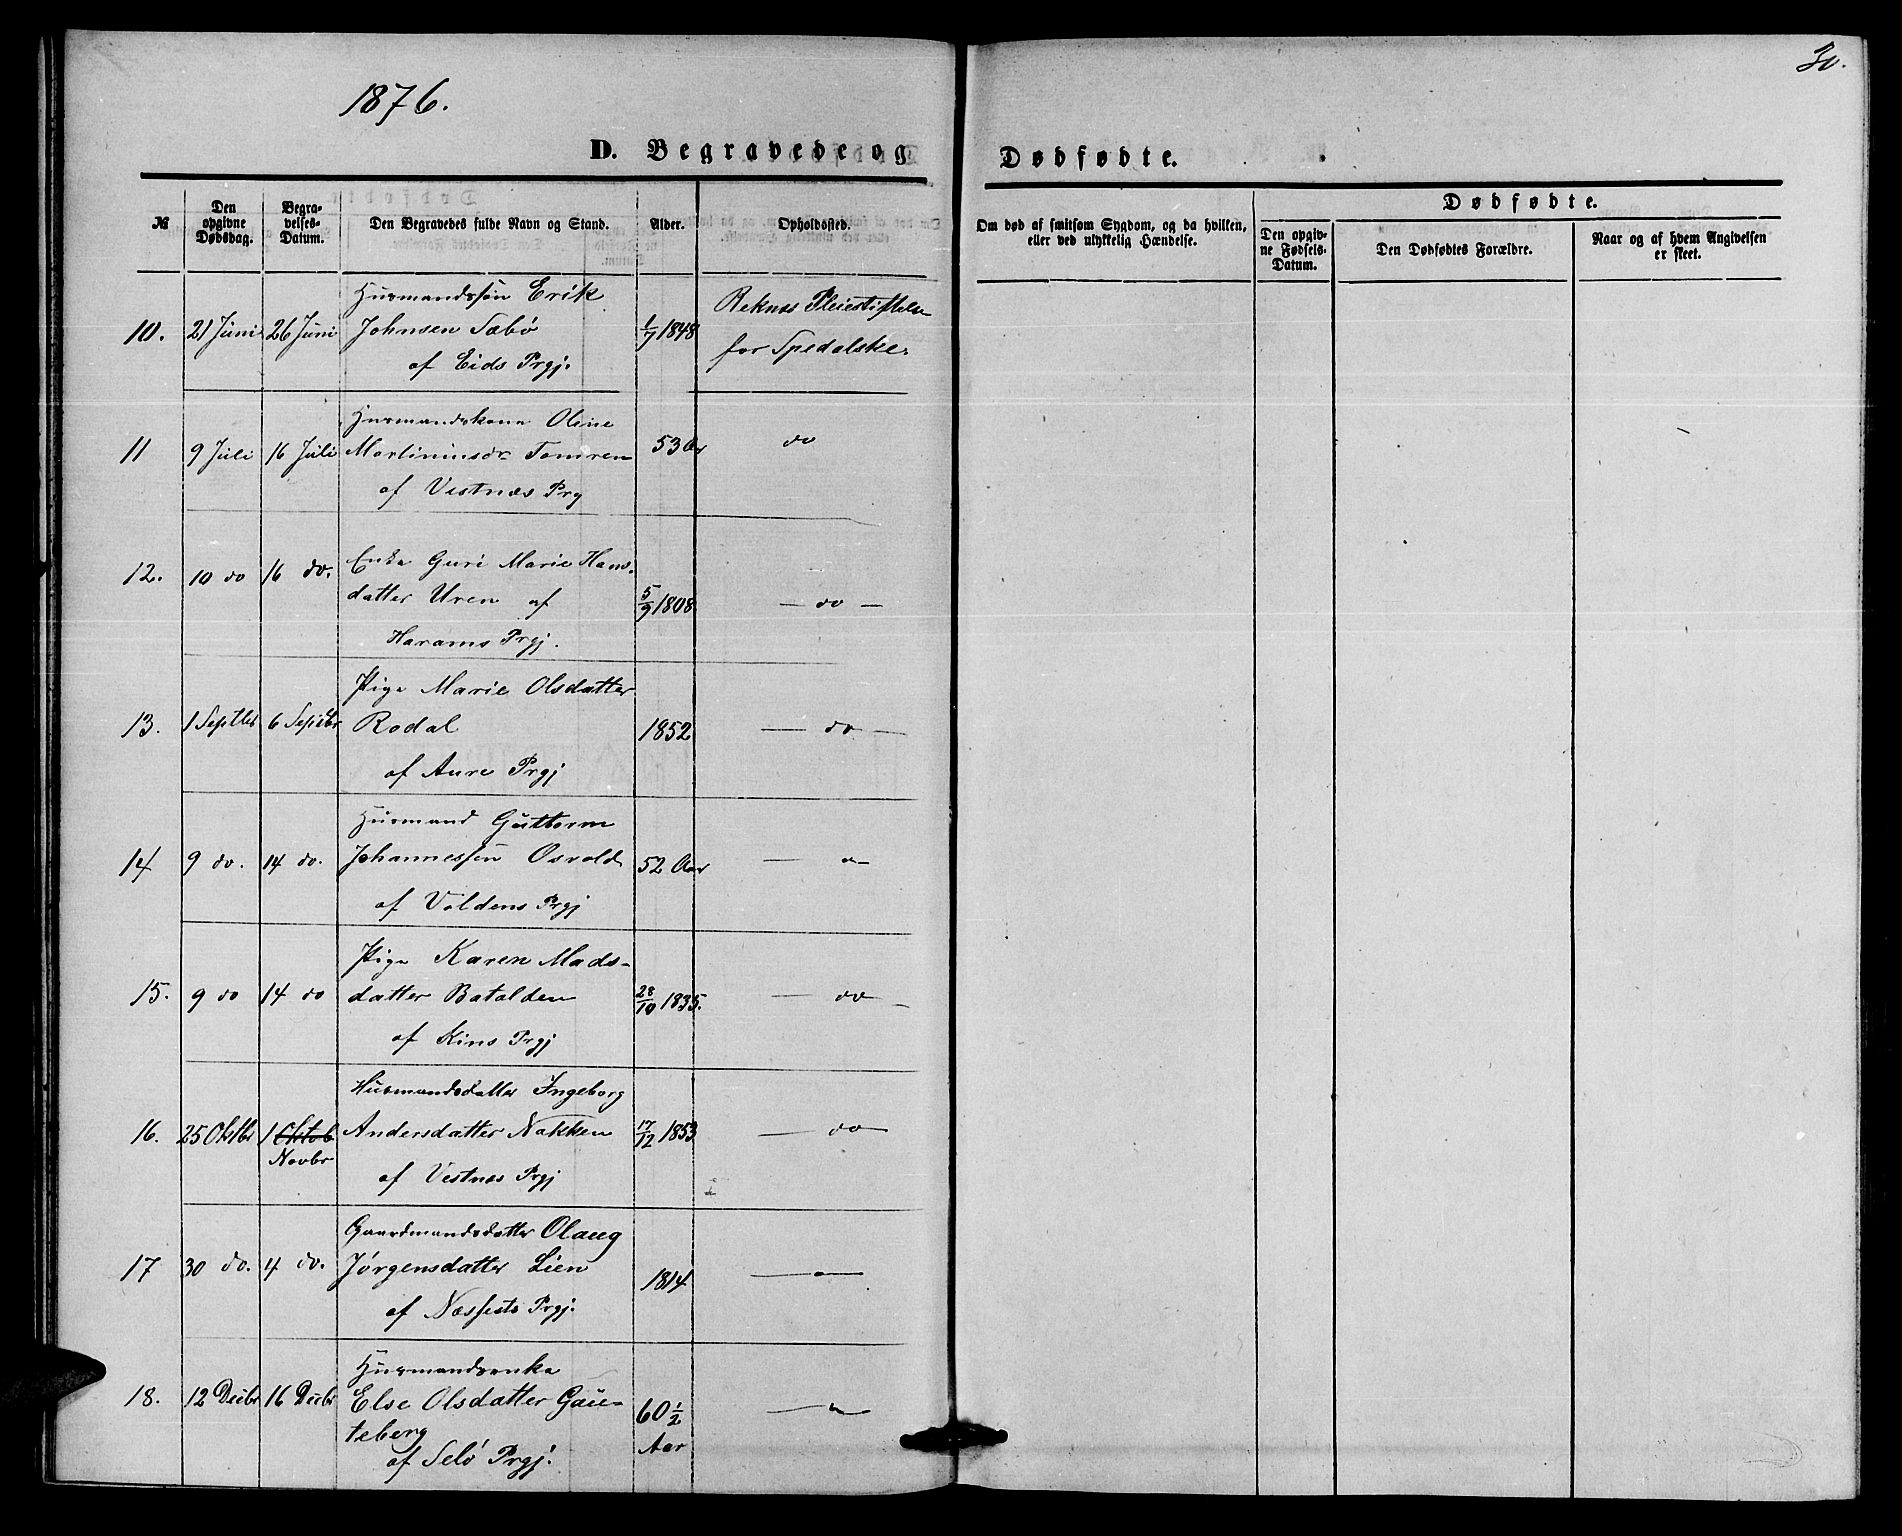 1876.
30.
D. Begravede og Dødfødte.
№
Den opgivne Dødsdag.
Begravelses-Datum.
Den Begravedes fulde Navn og Stand.
Alder.
Opholdssted.
Om død af smitsom Sygdom, og da hvilken, eller ved ulykkelig Hændelse.
Dødfødte.
Den opgivne Fødsels-Datum.
Den Dødfødtes Forældre.
Naar og af hvem Angivelsen er skeet.
Husmandssøn Erik
10. 21 Juni 26 Juni Johnsen Sæbö 1/7 1848 Reknæs Pleiestiftelse
af Eids Prgj. for Spedalske
Husmandskone Oline
11 9 Juli 16 Juli Martininsdr Tomren 53 Aar do
af Vestnæs Prg
12. 10 do 16 do. Enke Guri Marie Hans-
datter Uren af 5/9 1808 — do —
Harams Prgj.
Pige Marie Olsdatter
13. 1 Septbr 6 Septbr Rodal 1852 — do —
af Aure Prgj
Husmand Guttorm
14 9 do. 14 do. Johannessen Osvold 52 Aar — " —
af Voldens Prgj
Pige Karen Mads-
15. 9 do 14 do datter Batalden 28/10 1835. — do —
af Kins Prgj
Husmandsdatter Ingeborg
16. 25 Oktbr 1 Oktob Andersdatter Nakken 17/12 1853 — do —
Novbr af Vestnæs Prgj
Gaardmandsdatter Olaug
17 30 do. 4 do. Jörgensdatter Lien 1814 — " —
af Næssets Prgj.
Husmandsenke
18. 12 Decbr 16 Decbr Else Olsdatter Gau- 60 1/2 — " —
teberg Aar
af Selö Prgj.